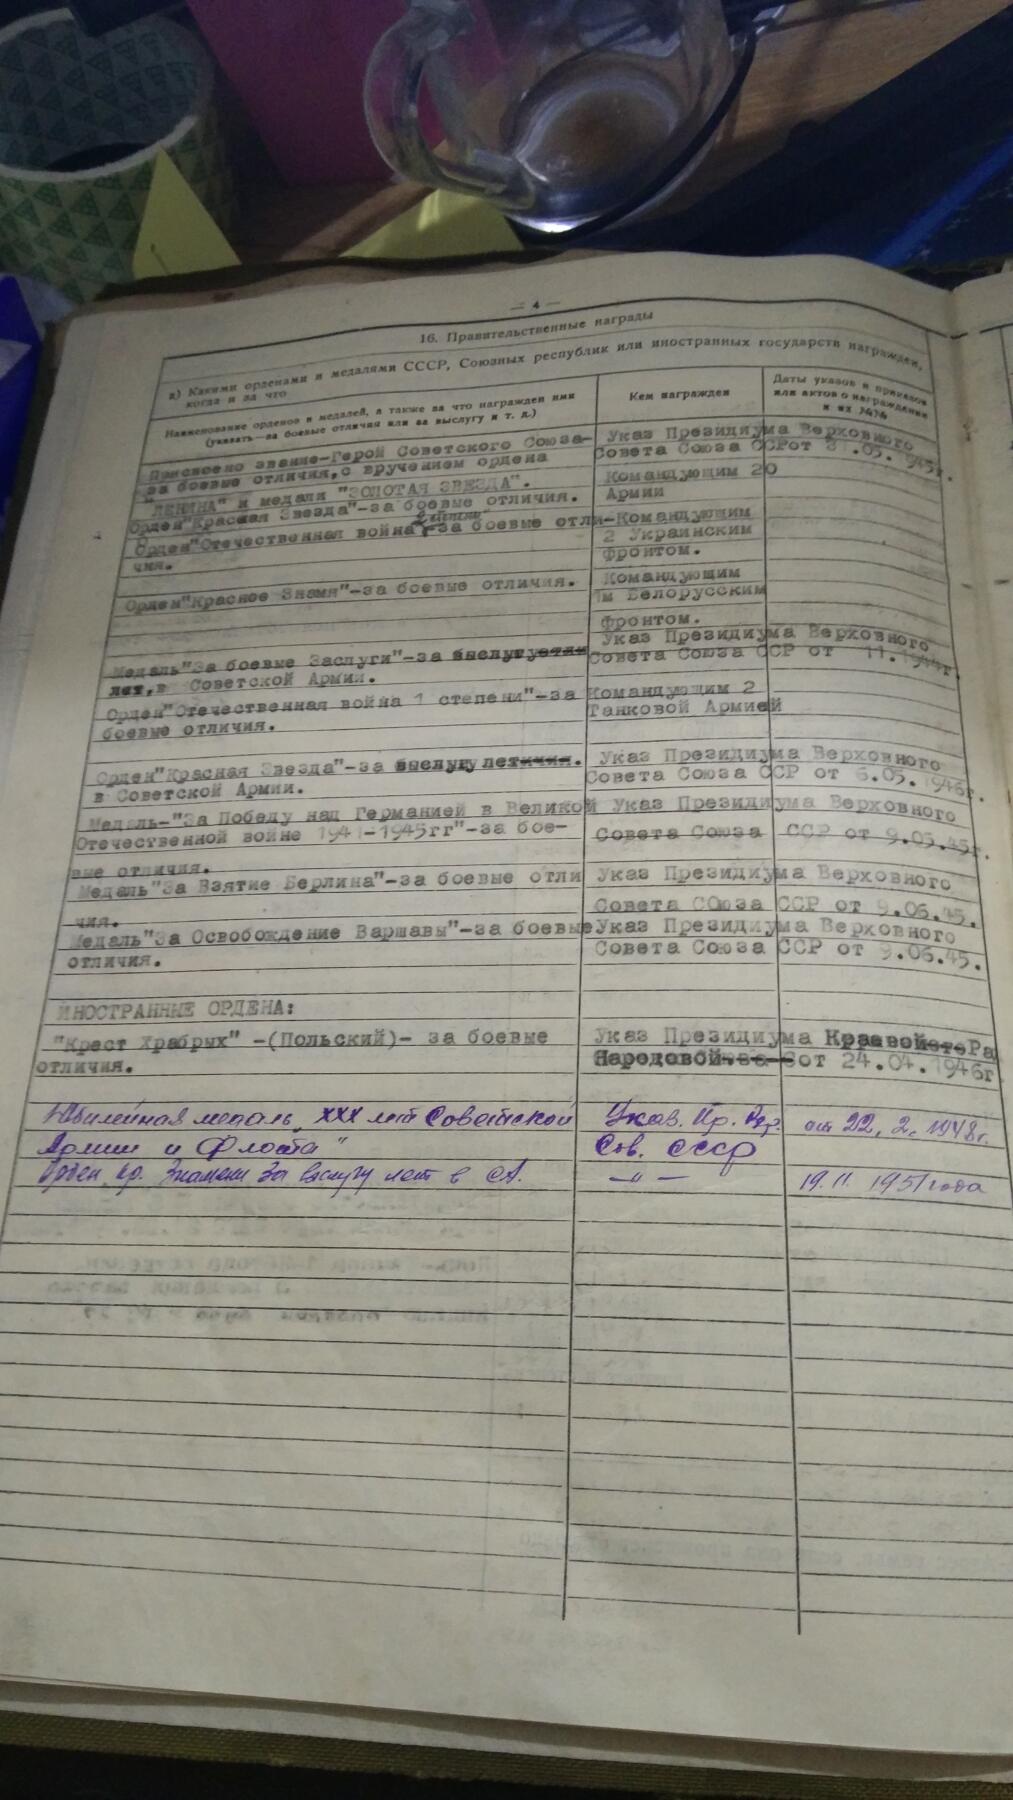 — 4 —
16. Правительственные награды
а) Какими орденами и медалями СССР, Союзных республик или иностранных государств награжден,
когда и за что
Наименование орденов и медалей, а также за что награжден ими
(указать—за боевые отличия или за выслугу и т. д.)
Кем награжден
Даты указов и приказов
или актов о награждении
и их №№
Присвоено звание-Герой Советского Союза- Указ Президиума Верховного
за боевые отличия,с вручением ордена Совета Союза ССР от 31.05.1945г.
"ЛЕНИНА" и медали "ЗОЛОТАЯ ЗВЕЗДА".
Орден"Красная Звезда"-за боевые отличия. Командующим 20
Армии
Орден"Отечественная война"-за боевые отли- Командующим
чия. 2 Украинским
фронтом.
Орден"Красное Знамя"-за боевые отличия. Командующим
1м Белорусским
фронтом.
Медаль"За боевые Заслуги"-за выслугу Указ Президиума Верховного
лет,в Советской Армии. Совета Союза ССР от 11.1944г.
Орден"Отечественная война 1 степени"-за Командующим 2
боевые отличия. Танковой Армией
Орден"Красная Звезда"-за выслугу лет Указ Президиума Верховного
в Советской Армии. Совета Союза ССР от 6.05.1946г.
Медаль-"За Победу над Германией в Великой Указ Президиума Верховного
Отечественной войне 1941-1945гг"-за бое- Совета Союза ССР от 9.05.45г.
вые отличия.
Медаль"За Взятие Берлина"-за боевые отли Указ Президиума Верховного
чия. Совета СОюза ССР от 9.06.45.
Медаль"За Освобождение Варшавы"-за боевые Указ Президиума Верховного
отличия. Совета Союза ССР от 9.06.45.
ИНОСТРАННЫЕ ОРДЕНА:
"Крест Храбрых" -(Польский)- за боевые Указ Президиума Краевой Ра
отличия. Народовой от 24.04.1946г
Юбилейная медаль „XXX лет Советской Указ. Пр. Вер. от 22. 2. 1948г.
Армии и Флота" Сов. СССР
Орден Кр. Знамени за выслугу лет в СА. —"— 19.11.1951 года